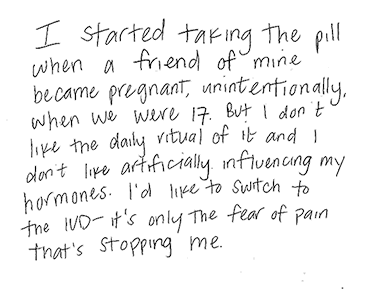 I started taking the pill
when a friend of mine
became pregnant, unintentionally,
when we were 17. But I don't
like the daily ritual of it and I
don't like artificially influencing my
hormones. I'd like to switch to
the IUD- it's only the fear of pain
that's stopping me.